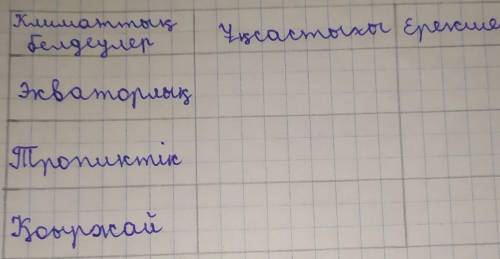 Климаттық белдеулер Ұқсастығы Ерекше
Экваторлық
Тропиктік
Қоңржай